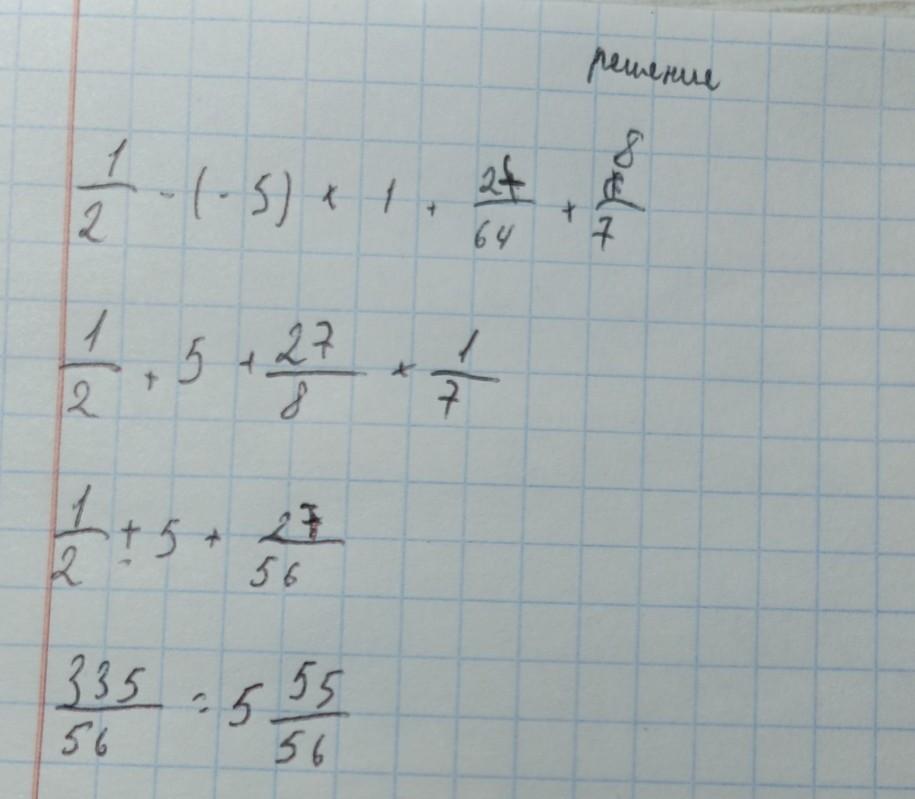 решение
1/2 - (-5) × 1 + 27/64 × 8/7
1/2 + 5 + 27/8 × 1/7
1/2 + 5 + 27/56
335/56 = 5 55/56